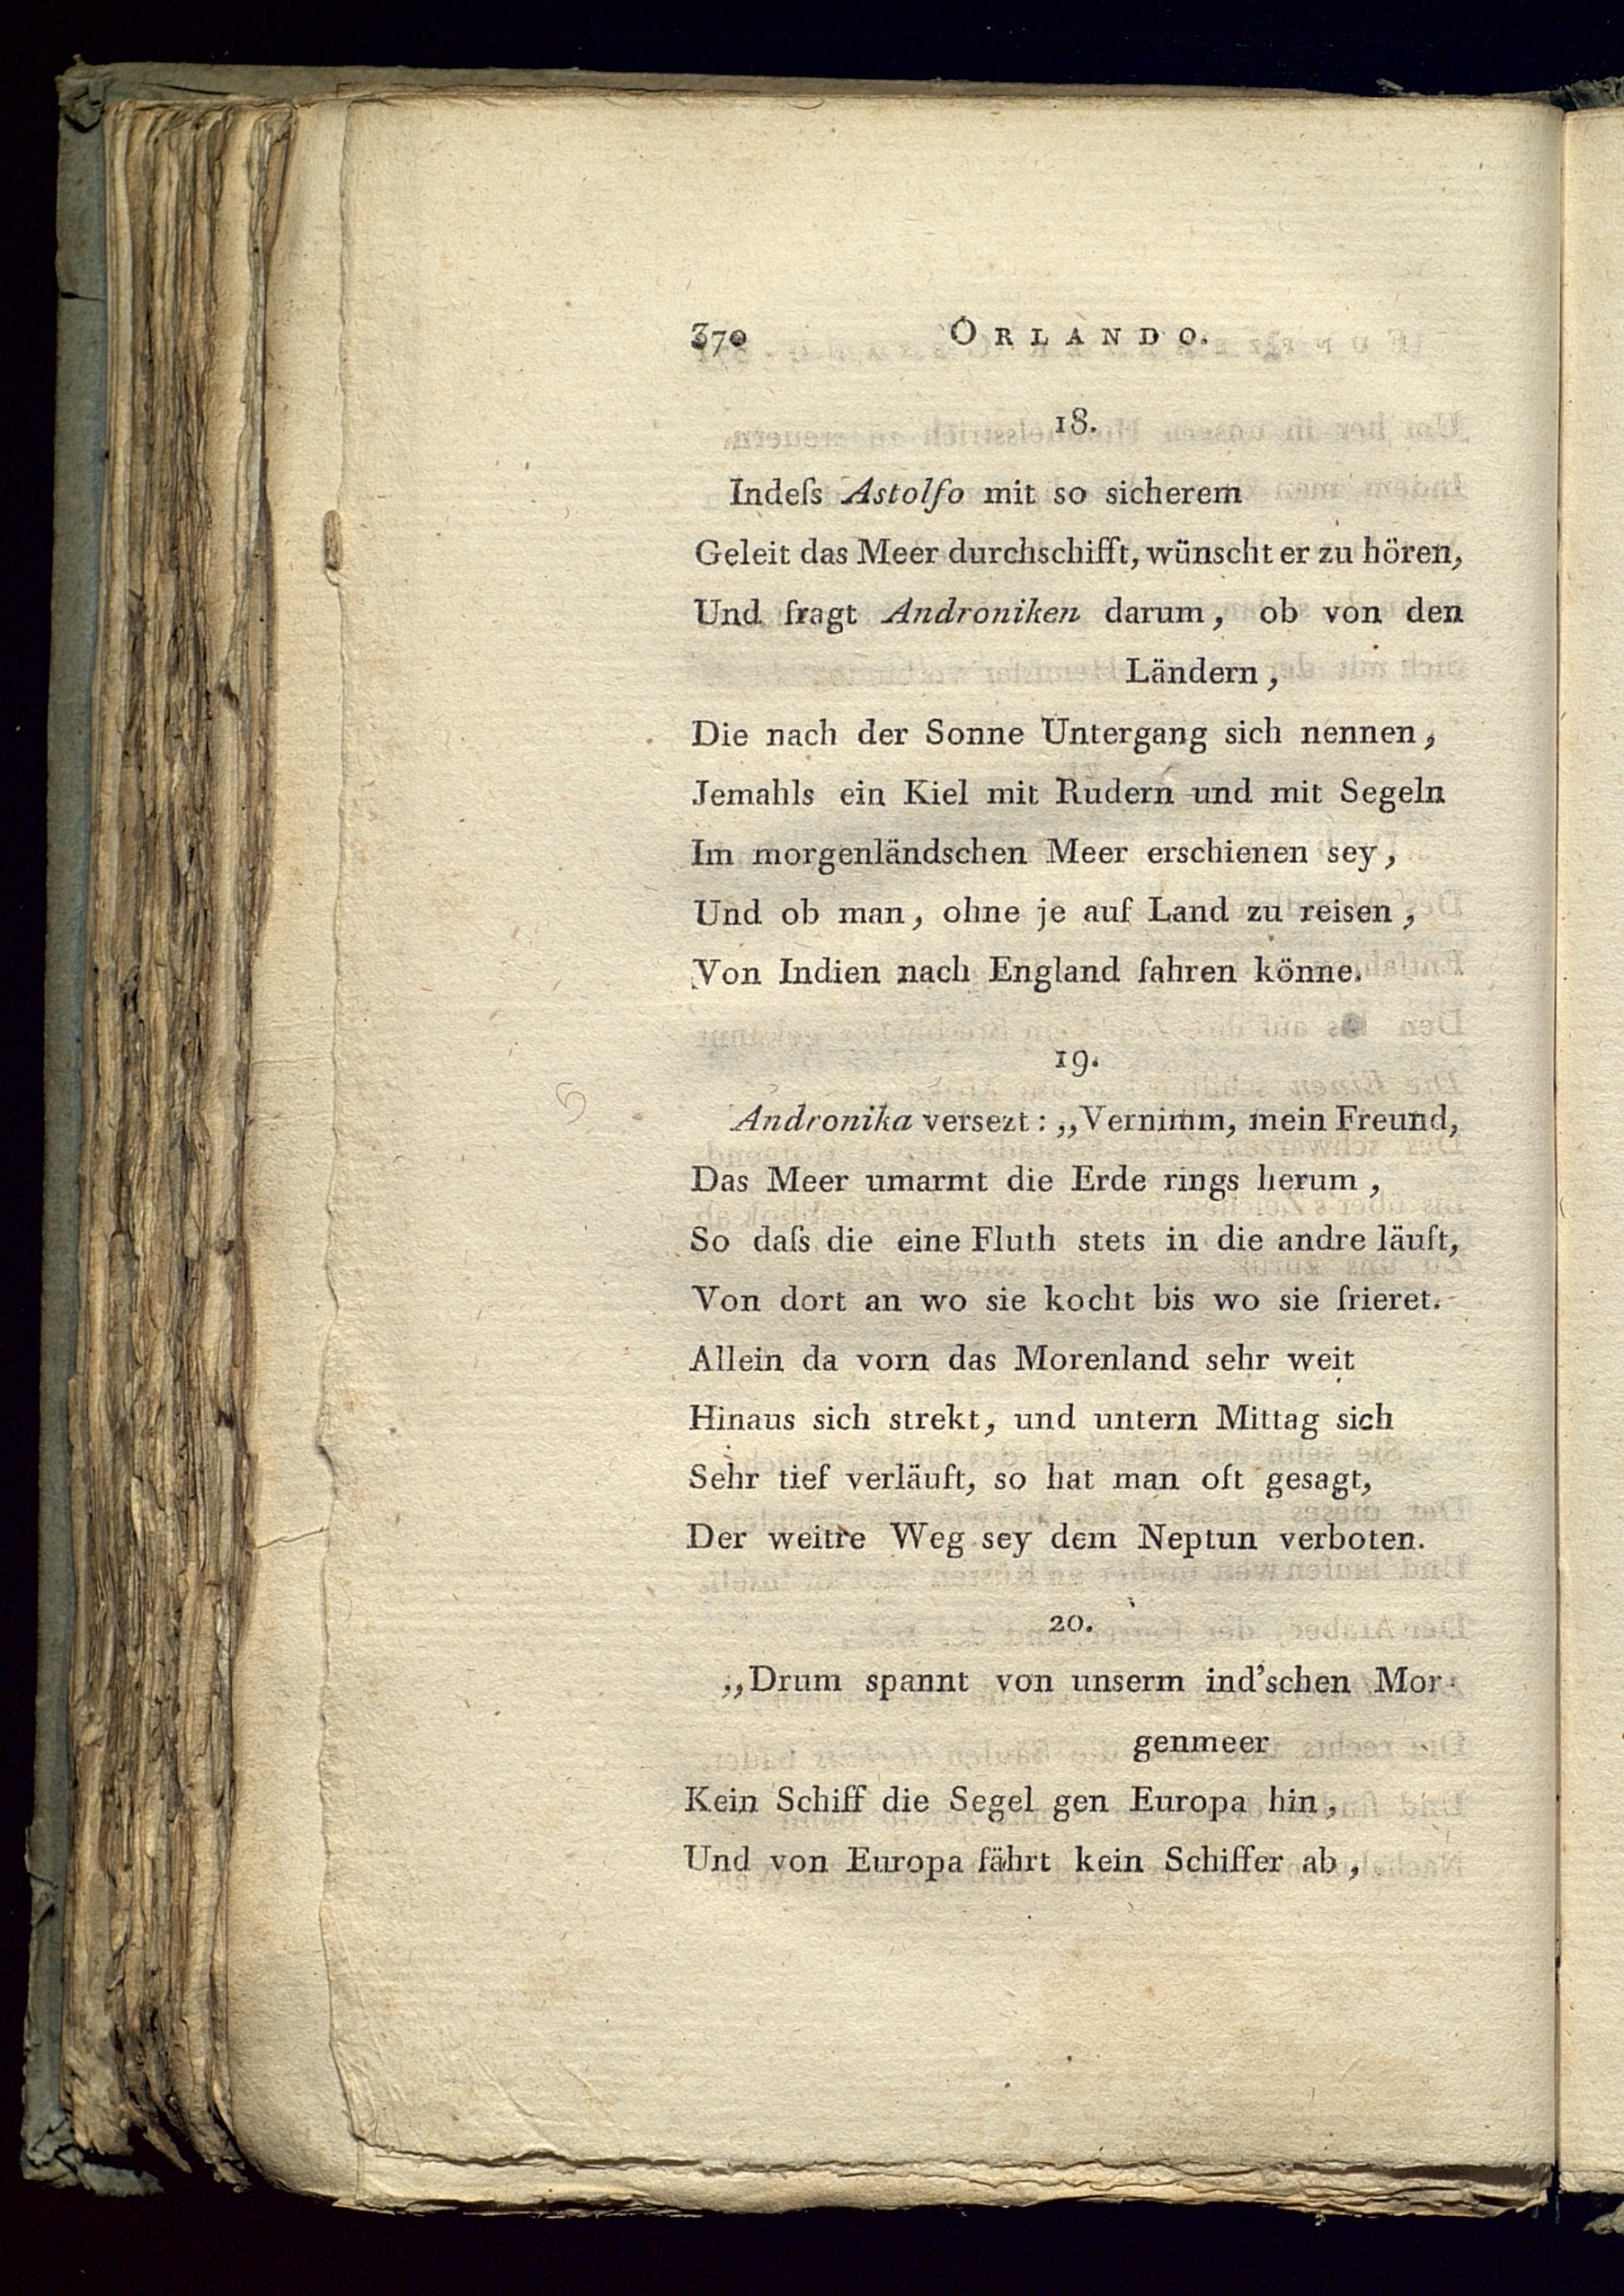 370 ORLANDO.
18.
Indeſs Astolfo mit so sicherem
Geleit das Meer durchschifft, wünscht er zu hören,
Und fragt Androniken darum, ob von den
Ländern,
Die nach der Sonne Untergang sich nennen,
Jemahls ein Kiel mit Rudern und mit Segeln
Im morgenländschen Meer erschienen sey,
Und ob man, ohne je auf Land zu reisen,
Von Indien nach England fahren könne.
19.
Andronika versezt: „Vernimm, mein Freund,
Das Meer umarmt die Erde rings herum,
So daſs die eine Fluth stets in die andre läuft,
Von dort an wo sie kocht bis wo sie frieret.
Allein da vorn das Morenland sehr weit
Hinaus sich strekt, und untern Mittag sich
Sehr tief verläuft, so hat man oft gesagt,
Der weitre Weg sey dem Neptun verboten.
20.
„Drum spannt von unserm ind'schen Mor-
genmeer
Kein Schiff die Segel gen Europa hin,
Und von Europa fährt kein Schiffer ab,